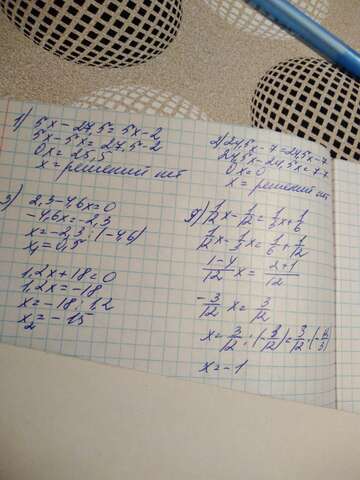 1) 5x - 27,5 = 5x - 2
5x - 5x = 27,5 - 2
0x = 25,5
x = решений нет
2) 24,5x - 7 = 24,5x - 7
24,5x - 24,5x = 7-7
0x = 0
x = решений нет
3) 2,3 - 4,6x = 0
-4,6x = -2,3
x = -2,3 : (-4,6)
x₁ = 0,5
1,2x + 18 = 0
1,2x = -18
x = -18 : 1,2
x₂ = -15
4) 1/12 x - 1/12 = 1/3 x + 1/6
1/12 x - 1/3 x = 1/6 + 1/12
1-4/12 x = 2+1/12
-3/12 x = 3/12
x = 3/12 : (-3/12) = 3/12 · (-12/3)
x = -1